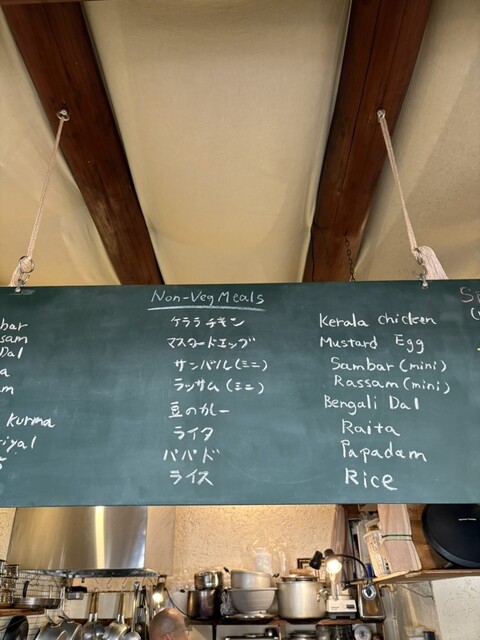 Non-Veg Meals
ケララチキン Kerala chicken
マスタードエッグ Mustard Egg
サンバル(ミニ) Sambar(mini)
ラッサム(ミニ) Rassam(mini)
豆のカレー Bengali Dal
ライタ Raita
パパド Papadam
ライス Rice
bar
sam
Dal
a
m
kurma
riyal